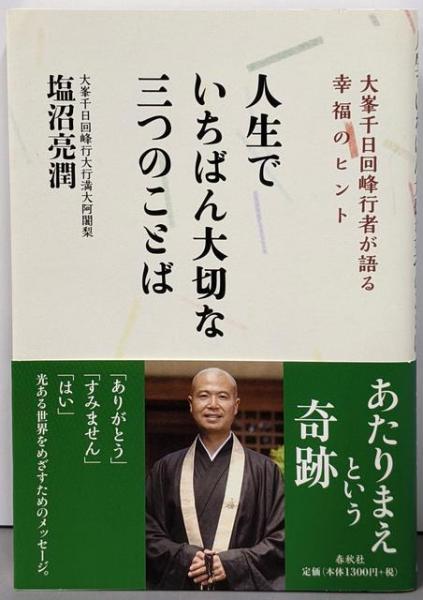 大峯千日回峰行者が語る
幸福のヒント
人生で
いちばん大切な
三つのことば
大峯千日回峰行大行満大阿闍梨
塩沼亮潤
あたりまえ
という
奇跡
「ありがとう」
「すみません」
「はい」
光ある世界をめざすためのメッセージ。
春秋社
定価(本体1300円+税)